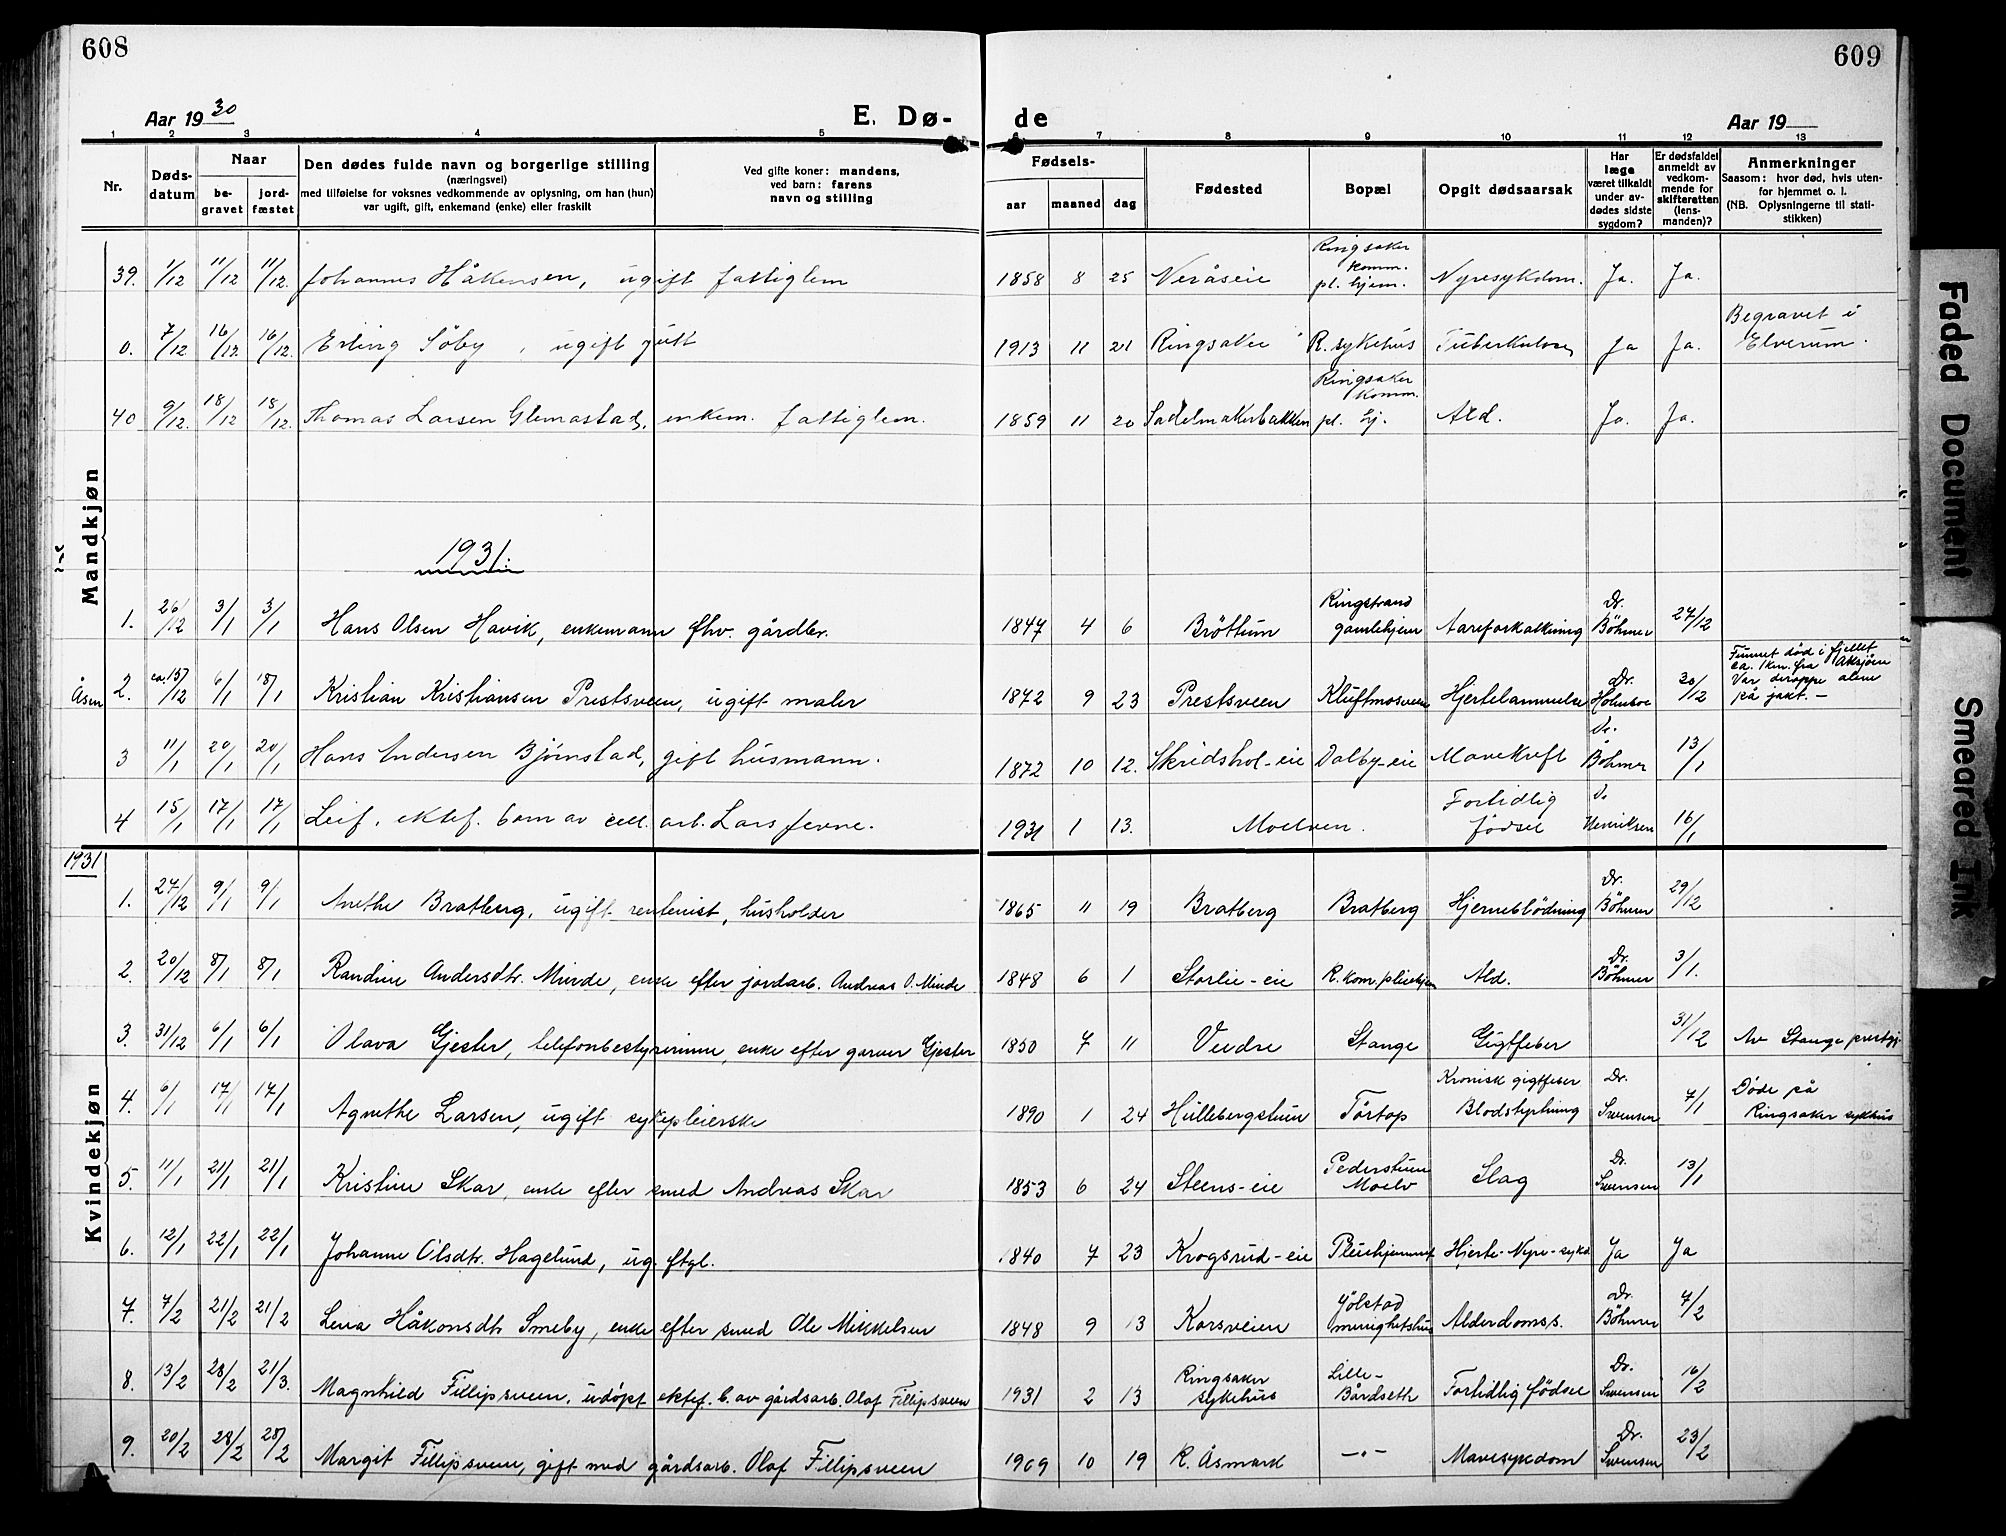 608
609
Aar 1930
E. Dø-
de
Aar 19
1 2 3 4 5 6 7 8 9 10 11 12 13
Nr.
Døds-
datum
Naar
be-
gravet
jord-
fæstet
Den dødes fulde navn og borgerlige stilling
(næringsvei)
med tilføielse for voksnes vedkommende av oplysning, om han (hun)
var ugift, gift, enkemand (enke) eller fraskilt
Ved gifte koner: mandens,
ved barn: farens
navn og stilling
Fødsels-
aar
maaned
dag
Fødested
Bopæl
Opgit dødsaarsak
Har
læge
været tilkaldt
under av-
dødes sidste
sygdom?
Er dødsfaldet
anmeldt av
vedkom-
mende for
skifteretten
(lens-
manden)?
Anmerkninger
Saasom: hvor død, hvis uten-
for hjemmet o. l.
(NB. Oplysningerne til stati-
stikken)
Mandkjøn
39. 1/12 11/12 11/12. Johannes Håkensen, ugift fattiglem 1858 8 25 Veråseie Ringsaker komm. pl. hjem. Nyresykdom. Ja. Ja.
0. 7/12 16/12 16/12. Erling Söby, ugift gutt 1913 11 21 Ringsaker R. sykehus Tuberkulose Ja Ja. Begravet i Elverum.
40 9/12. 18/12 18/12. Thomas Larsen Glemastad, enkem. fattiglem. 1859 11 20 Sadelmakerbakken Ringsaker komm. pl. hj. Ald. Ja. Ja.
1931.
1. 26/12 3/1 3/1 Hans Olsen Havik, enkemann fhv. gårdbr. 1847 4 6 Bröttum Ringstrand gamlehjem Aareforkalkning Dr. Böhmer 27/12
Åsen 2. ca. 15/12 6/1 18/1 Kristian Kristiansen Prestsveen, ugift maler 1872 9 23 Prestsveen Kluftmosveen Hjertelammelse Dr. Holmboe 30/12 Funnet död i fjellet ca. 1 km. fra Aksjöen Var deroppe alene på jakt. —
3 11/1 20/1 20/1 Hans Andersen Bjørnstad, gift husmann. 1872 10 12. Skredshol-eie Dalby-eie Mavekreft Dr. Böhmer 13/1
4 15/1 17/1 17/1 Leif, ektef. barn av cell. arb. Lars Jevne. 1931 1 13. Moelven. Fortidlig födsel Dr Henriksen 16/1
1931
Kvindekjøn
1. 27/12 9/1 9/1 Anethe Bratberg, ugift rentenist, husholder 1865 11 19 Bratberg Bratberg Hjerneblödning Dr. Böhmer 29/12
2. 20/12 8/1 8/1 Randine Andersdtr. Minde, enke efter jordarb. Andreas O. Minde 1848 6 1 Storlie-eie R. kom. pleiehjem Ald. Dr. Böhmer 3/1.
3. 31/12 6/1 6/1 Olava Gjester, telefonbestyrerinne, enke efter garver Gjester 1850 7 11 Veldre Stange Gigtfeber 31/12 Av Stange prestgj.
4. 6/1 17/1 17/1 Agnethe Larsen, ugift sykepleierske 1890 1 24 Hullebergstuen Törtop Kronisk gigtfeber Blodstyrtning Dr. Svensen 7/1 Döde på Ringsaker sykhus
5. 11/1 21/1 21/1 Kristine Skar, enke efter smed Andreas Skar 1853 6 24 Steens-eie Pederstuen Moelv Slag Dr. Svensen 13/1
6. 12/1 22/1 22/1 Johanne Olsdtr. Hagelund, ug. ftgl. 1840 7 23 Krogsrud-eie Pleiehjemmet Hjerte-Nyre-sykd. Ja Ja
7. 7/2 21/2 21/2 Lena Håkonsdtr Smeby, enke efter smed Ole Mikkelsen 1848 9 13 Korsveien Jölstad menighetshus Alderdomss. Dr. Böhmer 7/2
8. 13/2 28/2 21/3. Magnhild Fillipsveen, udöpt ektef. b. av gårdsarb. Olaf Fillipsveen 1931 2 13 Ringsaker sykehus Lille-Bårdseth Fortidlig födsel Dr. Svensen 16/2
9. 20/2 28/2 28/2 Margit Fillipsveen, gift med gårdsarb. Olaf Fillipsveen 1909 10 19 R. Åsmark —"— Mavesykdom Dr. Svensen 23/2
Faded Document
Smeared Ink